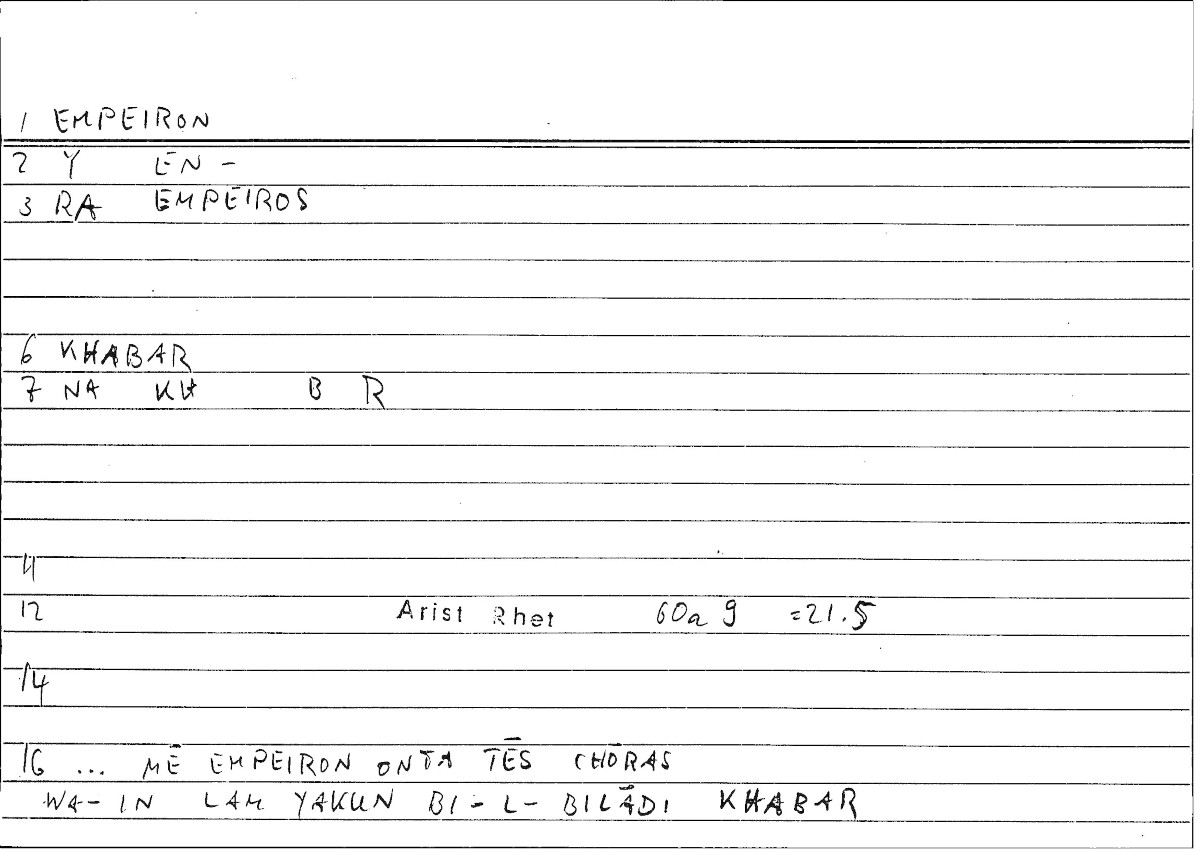 1 EMPEIRON
2 Y EN -
3 RA EMPEIROS
6 KHABAR
7 NA KH B R
11
12 Arist Rhet 60a 9 =21.5
14
16 ... MĒ EMPEIRON ONTA TĒS CHŌRAS
WA-IN LAM YAKUN BI-L-BILĀDI KHABAR